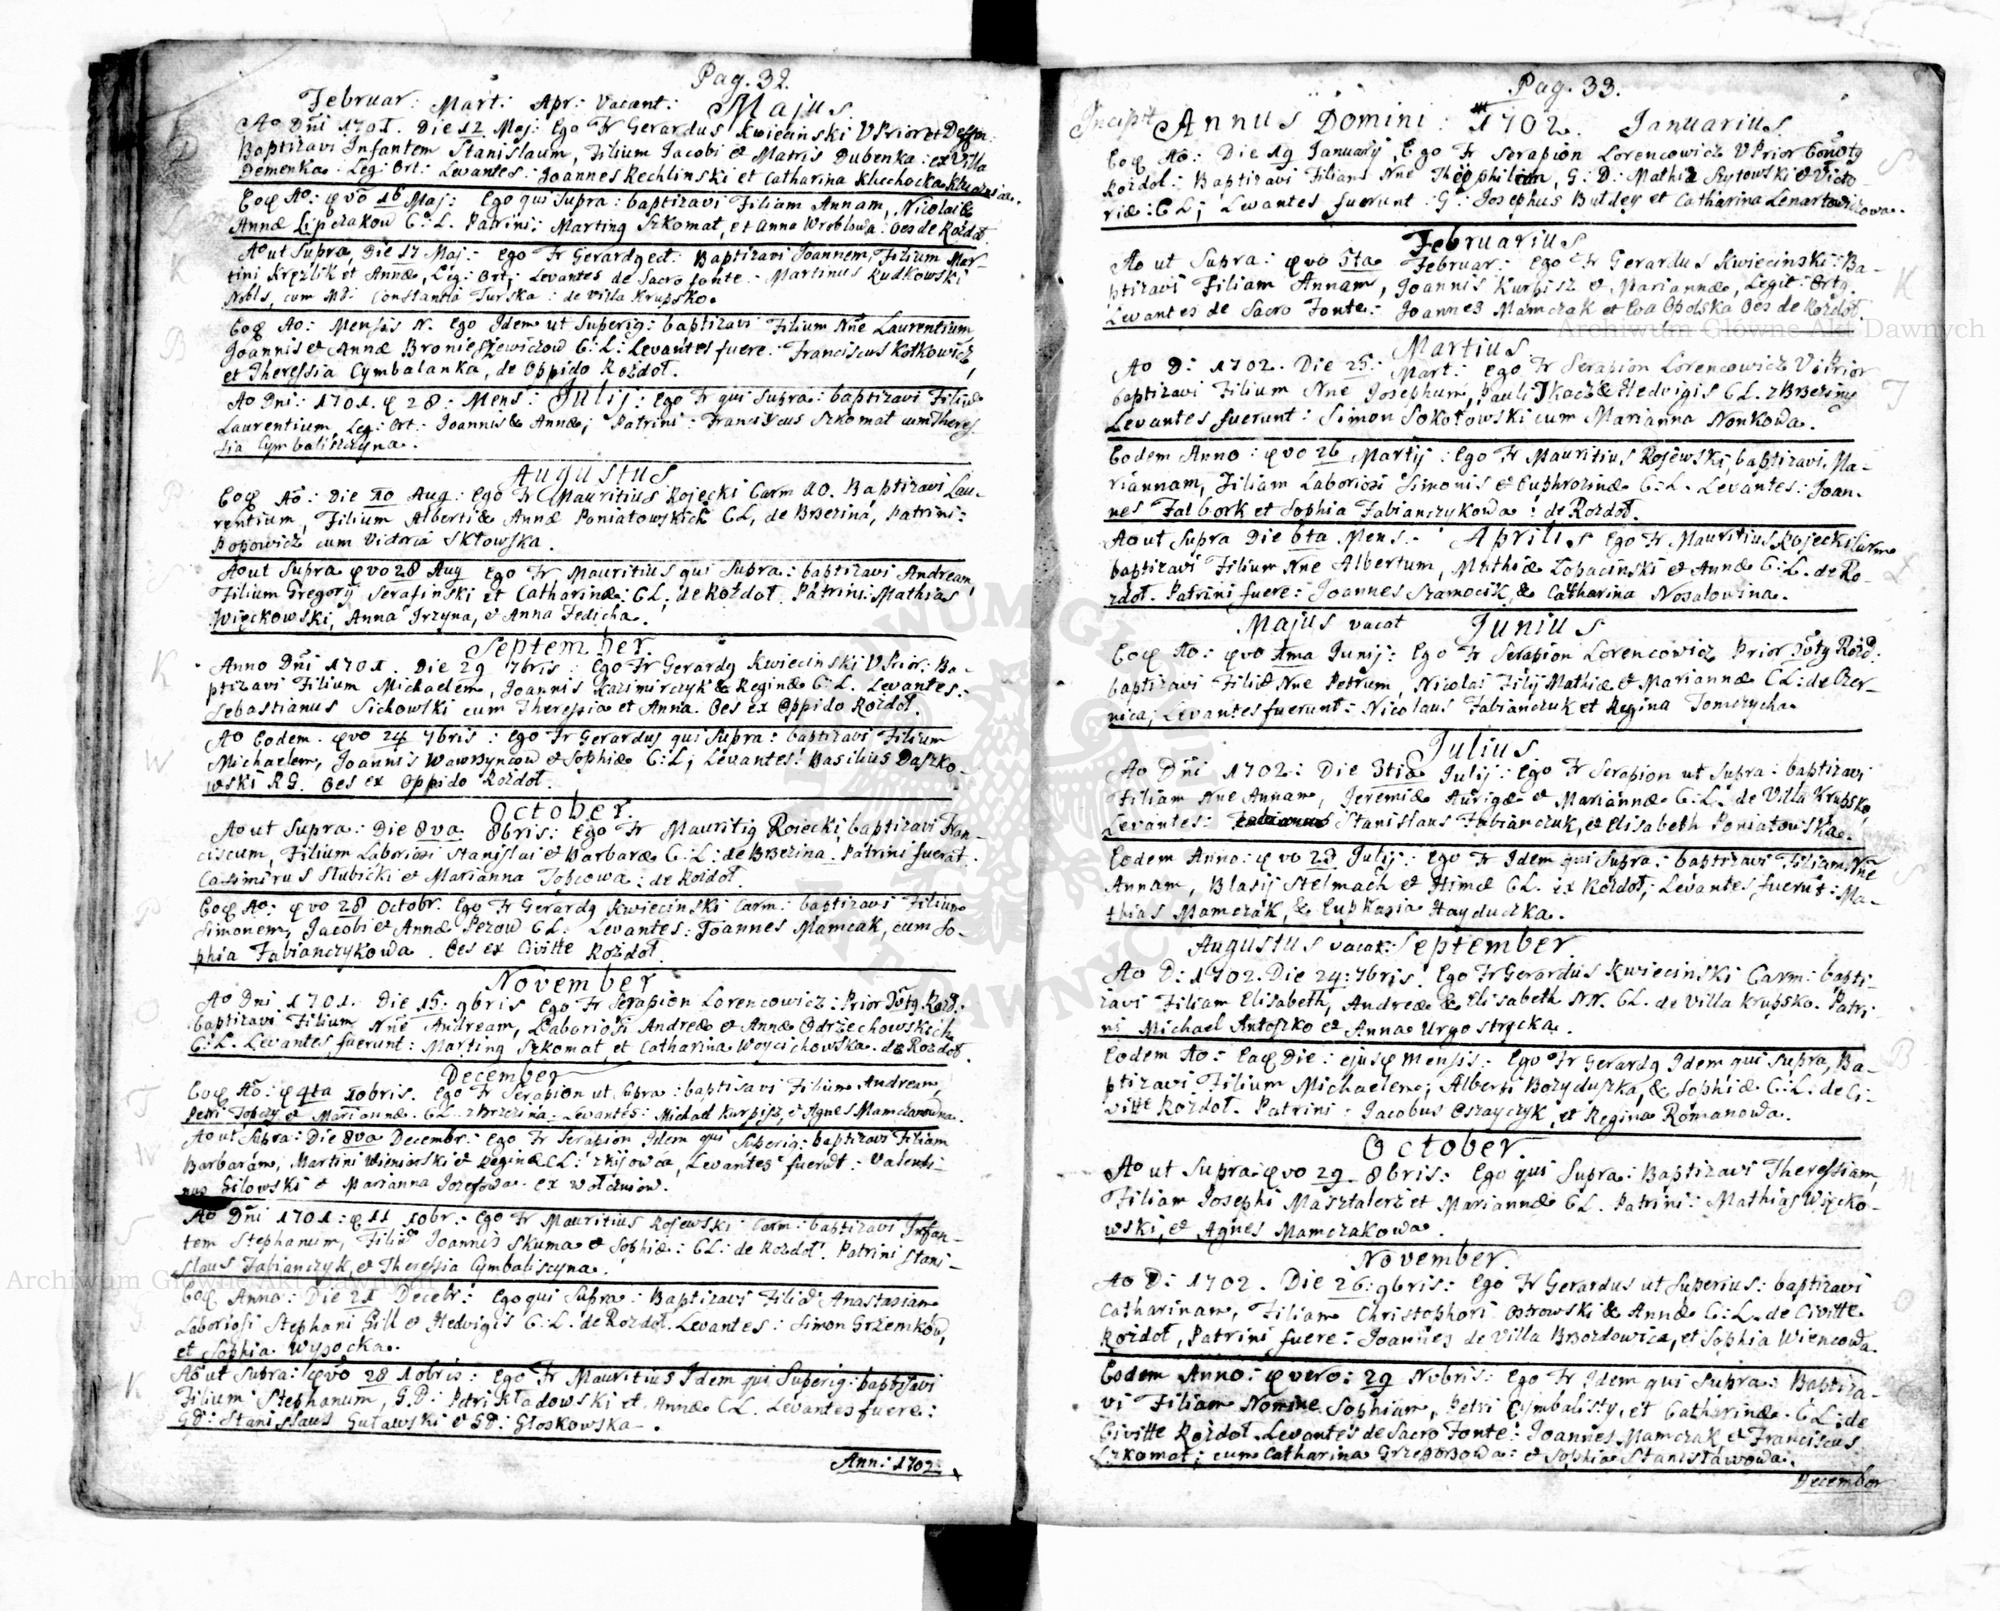 Pag. 32.
Februar: Mart: Apr: vacant: Majus.
Ao Dñi 1701. Die 12 Maj: Ego Fr Gerardus Kwiecinski VPrior et
Baptizavi Infantem Stanislaum, Filium Jacobi & Matris Dubenka: ex Villa
Demenka. Leg: Ort: Levantes: Joannes Rechlinski et Catharina Kluchocka
Eoq Ao: qvo 16 Maj: Ego qui Supra: baptizavi Filiam Annam, Nicolai &
Annæ Lipczakow C: L. Patrini: Marting Szkomat, et Anna Wroblowa: Oes de Rozdoł.
Ao ut Supra, Die 17 Maj: Ego Fr Gerardg ect: Baptizavi Joannem, Filium Mar-
tini Kręzlik et Annæ, Leg: Ort; Levantes de Sacro fonte: Martinus Rudkowski
Nobls, cum Constantia Turska: de Villa Krupsko.
Eoq Ao: Mensis N. Ego Idem ut Superig: baptizavi Filium Nñe Laurentium,
Joannis & Annæ Broniszewiczow C: L: Levantes fuere: Franciscus Kotkowicz,
et Theressia Cymbalanka, de Oppido Rozdoł.
Ao Dni: 1701. q 28: Mens: Julij: Ego Fr qui Supra: baptizavi Filiū
Laurentium Leg: Ort: Joannis & Annæ; Patrini: Franciscus Szkomat cum Theres-
sia Cymbaliszczyna.
Augustus
Eoq Ao: Die 10 Aug: Ego Fr Mauritius Rojecki Carm AO. Baptizavi Lau-
rentium, Filium Alberti & Annæ Poniatowskich CL, de Brzezina, Patrini:
Popowicz cum Victoria Skłowska.
Ao ut Supra qvo 28 Aug Ego Fr Mauritius qui Supra: baptizavi Andream,
Filium Gregorij Serafinski et Catharinæ: CL, de Rozdoł. Patrini: Mathias
Więckowski, Anna Irzyna, & Anna Fedicha.
September.
Anno Dñi 1701. Die 29 7bris: Ego Fr Gerardg Kwiecinski VPrior: Ba-
ptizavi Filium Michaelem, Joannis Kazimirczyk & Reginæ C: L. Levantes:
Sebastianus Sichowski cum Theressia et Anna. Oes ex Oppido Rozdoł.
Ao Eodem. qvo 24 7bris: Ego Fr Gerardus qui Supra: baptizavi Filium
Michaelem, Joannis Wawrzyncow & Sophiæ C: L; Levantes: Basilius Daszko-
wski RG. Oes ex Oppido Rozdoł.
October.
Ao ut Supra: Die 8va 8bris: Ego Fr Mauritig Roiecki, baptizavi Fran-
ciscum, Filium Laboriosi Stanislai & Barbaræ C: L: de Brzezina. Patrini fuerāt.
Casimirus Slubicki et Marianna Topcowa: de Rozdoł.
Eoq Ao: qvo 28 Octobr. Ego Fr Gerardg Kwiecinski Carm: baptizavi Filium
Simonem, Jacobi & Annæ Perow CL. Levantes: Joannes Mamcak, cum So-
phia Fabianczykowa. Oes ex Civitte Rozdoł.
November
Ao Dni 1701. Die 15: 9bris Ego Fr Serapion Lorencowicz: Prior Rozd:
baptizavi Filium Nñe Andream, Laboriosi Andreæ & Annæ Odrzechowskich
C: L. Levantes fuerunt: Marting Szkomat et Catharina Woycichowska. de Rozdoł.
December
Eoq Ao: q 4ta 10bris. Ego Fr Serapion ut Supra: baptisavi Filium Andream,
Petri Topczy & Mariannæ. CL. z Brzezina: Levantes: Michael Kurpisz, & Agnes Mamczarowna.
Ao ut Supra: Die 8va Decembr: Ego Fr Serapion Idem qui Superig: baptizavi Filiam
Barbaram, Martini Wieniarski & Reginæ CL: z Kijowca, Levantes fuerūt: Valenti-
nus Gilowski & Marianna Jozefowa. ex Wołcniow.
Ao Dñi 1701: q 11 10br: Ego Fr Mauritius Rojewski Carm: baptizavi Infan-
tem Stephanum, Filiū Joannis Skuma & Sophiæ: CL: de Rozdoł. Patrini Stani-
slaus Fabianczyk, & Theressia Cymbaliscyna.
Eoq Anno: Die 21 Decebr: Ego qui Supra: Baptizavi Filiā Anastasiam
Laboriosi Stephani Gill & Hedvigis C: L. de Rozdoł. Levantes: Simon Grzemkow,
et Sophia Wysocka.
Ao ut Supra: qvo 28 10bris: Ego Fr Mauritius Idem qui Superig: baptisavi
Filium Stephanum, G: D: Petri Kładowski et Annæ CL. Levantes fuere:
GD: Stanislaus Gutawski & GD: Głoskowska.
Ann: 1702
Pag. 33.
Incipit Annus Domini: 1702. Januarius.
Eoq Ao: Die 19 January, Ego Fr Serapion Lorencowicz VPrior
Rozdol: Baptizavi Filiam Nñe Theophilam, G: D: Mathiæ Rytowski & Victo-
riæ: CL; Levantes fuerunt: G: Josephus Buldey et Catharina Lenartowiczowa.
Februarius
Ao ut Supra: qvo 5ta Februar: Ego Fr Gerardus Kwiecinski: Ba-
ptizavi Filiam Annam, Joannis Kurpisz & Mariannæ, Legit: Ortg.
Levantes de Sacro Fonte: Joannes Mamczak et Eva Opolska Oes de Rozdoł.
Martius
Ao D: 1702. Die 25: Mart: Ego Fr Serapion Lorencowicz VPrior
baptizavi Filium Nñe Josephum, Pauli Tkacz & Hedvigis CL. z Brzeziny
Levantes fuerunt: Simon Sokołowski cum Marianna Nonkowa.
Eodem Anno: qvo 26 Martij: Ego Fr Mauritius Rojewski, baptizavi Ma-
riannam, Filiam Laboriosi Simonis & Euphrozinæ C: L. Levantes: Joan-
nes Falbork et Sophia Fabianczykowa: de Rozdoł.
Ao ut Supra Die 6ta Mens: Aprilis Ego Fr Mauritius Rojecki Carm
baptizavi Filium Nñe Albertum, Mathiæ Lopacinski & Annæ C: L. de Ro-
zdoł. Patrini fuere: Joannes Szamocik, & Catharina Nosalowina.
Majus vacat Junius
Eoq Ao: qvo 1ma Junij: Ego Fr Serapion Lorencowicz Prior Rozd:
baptizavi Filiū Nñe Petrum, Nicolai Filij Mathiæ & Mariannæ CL: de Czer-
nica; Levantes fuerunt: Nicolaus Fabianczuk et Regina Tomczycha.
Julius
Ao Dñi 1702: Die 3tia Julij: Ego Fr Serapion ut Supra: baptizavi
Filiam Nñe Annam, Jeremiæ Aurigæ & Mariannæ C: L: de Villa Krupsko,
Levantes: Stanislaus Fabianczuk, & Elisabeth Poniatowska.
Eodem Anno: qvo 23 Julij: Ego Fr Idem qui Supra: baptizavi Filiam Nñe
Annam, Blasij Stelmach & Himæ CL. ex Rozdoł; Levantes fuerūt: Ma-
thias Mamczak, & Euphazia Hayduczka.
Augustus vacat: September.
Ao D: 1702. Die 24: 7bris: Ego Fr Gerardus Kwiecinski Carm: bapti-
zavi Filiam Elisabeth, Andreæ & Elisabeth NN. CL. de Villa Krupsko. Patri-
ni Michael Antoszko & Anna Urgo strącka.
Eodem Ao: Eaq Die: ejusq Mensis: Ego Fr Gerardg Idem qui Supra, Ba-
ptizavi Filium Michaelem; Alberti Bozyduszka, & Sophiæ C: L: de Ci-
vitte Rozdoł. Patrini: Jacobus Oszayczyk, et Regina Romanowa.
October.
Ao ut Supra qvo 29 8bris: Ego qui Supra: Baptizavi Theressiam,
Filiam Josephi Masztalerz et Mariannæ CL. Patrini: Mathias Więcko-
wski, & Agnes Mamczakowa.
November.
Ao D: 1702. Die 26: 9bris: Ego Fr Gerardus ut Superius: baptizavi
Catharinam, Filiam Christophori Ostrowski & Annæ C: L. de Civitte.
Rozdoł, Patrini fuere: Joannes de Villa Brzozdowica, et Sophia Wiencowa.
Eodem Anno: q vero: 29 Nobris: Ego Fr Idem qui Supra: Baptiza-
vi Filiam Nomine Sophiam, Petri Cymbalisty, et Catharinæ. CL: de
Civitte Rozdoł. Levantes de Sacro Fonte: Joannes Mamczak & Franciscus
Szkomat; cum Catharina Grzegorzowa: & Sophia Stanisławowa.
December
Archiwum Główne Akt Dawnych
Archiwum Główne Akt Dawnych